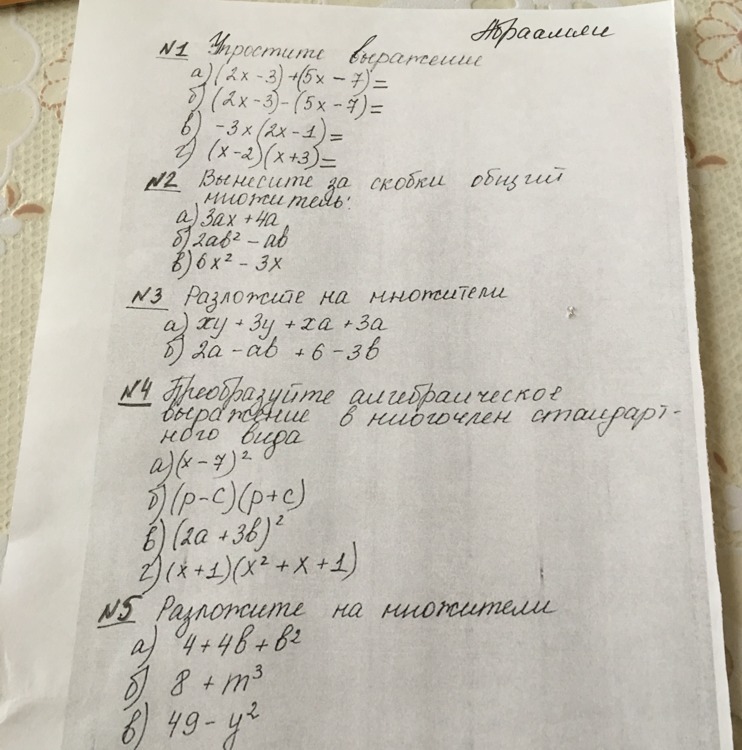 Абраамян
№1 Упростите выражение
а) (2x-3)+(5x-7)=
б) (2x-3)-(5x-7)=
в) -3x(2x-1)=
г) (x-2)(x+3)=
№2 Вынесите за скобки общий
множитель:
а) 3ax+4a
б) 2ab²-ab
в) 6x²-3x
№3 Разложите на множители
а) xy+3y+xa+3a
б) 2a-ab+6-3b
№4 Преобразуйте алгебраическое
выражение в многочлен стандарт-
ного вида
а) (x-7)²
б) (p-c)(p+c)
в) (2a+3b)²
г) (x+1)(x²+x+1)
№5 Разложите на множители
а) 4+4b+b²
б) 8+m³
в) 49-y²